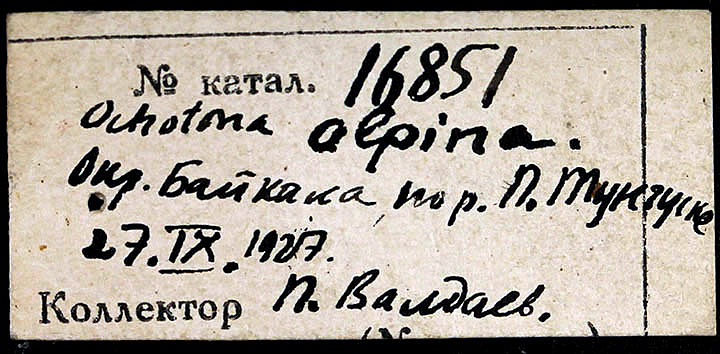 № катал. 16851
Ochotona alpina.
Окр. Байкала, по р. П. Тунгуске
27.IX.1927.
Коллектор П. Валдаев.